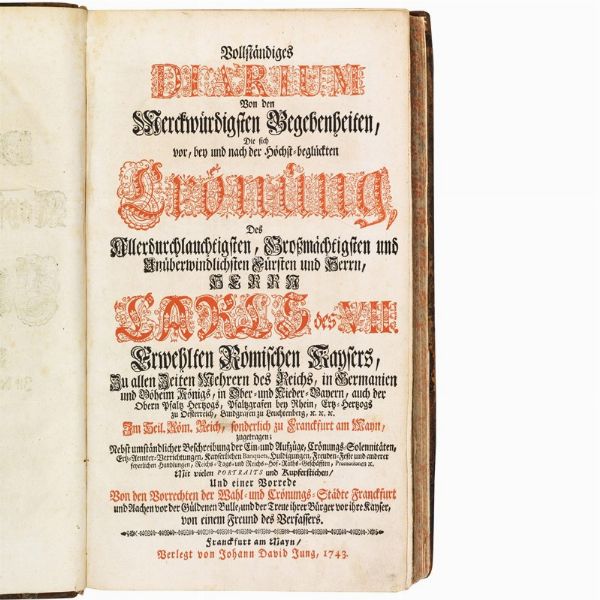 Vollständiges
DIARIUM
Von den
Merckwürdigsten Begebenheiten,
Die sich
vor, bey und nach der Höchst-beglückten
Crönung,
Des
Allerdurchlauchtigsten, Großmächtigsten und
Unüberwindlichsten Fürsten und Herrn,
HERRN
CARLS des VII.
Erwehlten Römischen Kaysers,
Zu allen Zeiten Mehrern des Reichs, in Germanien
und Böheim Königs, in Ober- und Nieder-Bayern, auch der
Obern Pfaltz Hertzogs, Pfaltzgrafen bey Rhein, Ertz-Hertzogs
zu Oesterreich, Landgrafen zu Leuchtenberg, ꝛc. ꝛc. ꝛc.
Im Heil. Röm. Reich, sonderlich zu Franckfurt am Mayn,
zugetragen:
Nebst umständlicher Beschreibung der Ein- und Aufzüge, Crönungs-Solennitäten,
Ertz-Aemter-Verrichtungen, Kayserlichen Banquets, Huldigungen, Freuden-Feste und anderer
feyerlichen Handlungen, Reichs-Tags- und Reichs-Hof-Raths-Geschäfften, Promotionen ꝛc.
Mit vielen PORTRAITS und Kupferstichen/
Und einer Vorrede
Von den Vorrechten der Wahl- und Crönungs-Städte Franckfurt
und Aachen vor der Güldenen Bulle, und der Treue ihrer Bürger vor ihre Kayser,
von einem Freund des Verfassers.
Franckfurt am Mayn/
Verlegt von Johann David Jung, 1743.